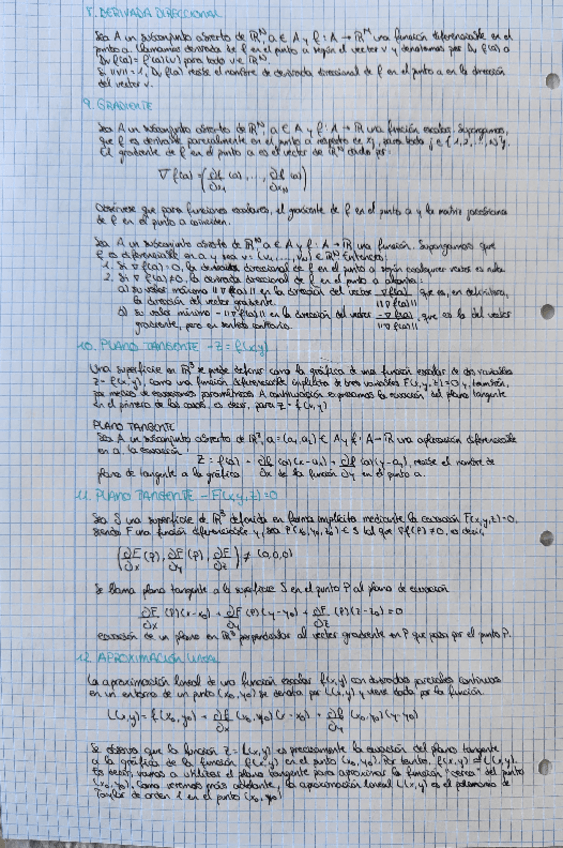 8. DERIVADA DIRECCIONAL
Sea A un subconjunto abierto de ℝᴺ, a ∈ A y f: A → ℝᴹ una función diferenciable en el
punto a. Llamamos derivada de f en el punto a según el vector v y denotamos por Dᵥ f(a) a
Dᵥ f(a) = f'(a)(v) para todo v ∈ ℝᴺ.
Si ||v|| = 1, Dᵥ f(a) recibe el nombre de derivada direccional de f en el punto a en la dirección
del vector v.
9. GRADIENTE
Sea A un subconjunto abierto de ℝᴺ, a ∈ A y f: A → ℝ una función escalar. Supongamos,
que f es derivable parcialmente en el punto a respecto de xⱼ, para todo j ∈ {1, 2, ..., N}.
El gradiente de f en el punto a es el vector de ℝᴺ dado por:
∇f(a) = (∂f/∂x₁ (a), ..., ∂f/∂xₙ (a))
Obsérvese que para funciones escalares, el gradiente de f en el punto a y la matriz jacobiana
de f en el punto a coinciden.
Sea A un subconjunto abierto de ℝᴺ, a ∈ A y f: A → ℝ una función. Supongamos que
f es diferenciable en a y sea v = (v₁, ..., vₙ) ∈ ℝᴺ. Entonces:
1. Si ∇f(a) = 0, la derivada direccional de f en el punto a según cualquier vector es nula.
2. Si ∇f(a) ≠ 0, la derivada direccional de f en el punto a alcanza:
a) su valor máximo ||∇f(a)|| en la dirección del vector ∇f(a)/||∇f(a)||, que es, en definitiva,
la dirección del vector gradiente.
b) su valor mínimo -||∇f(a)|| en la dirección del vector -∇f(a)/||∇f(a)||, que es la del vector
gradiente, pero en sentido contrario.
10. PLANO TANGENTE - Z = f(x,y)
Una superficie en ℝ³ se puede definir como la gráfica de una función escalar de dos variables
z = f(x,y), como una función diferenciable implícita de tres variables F(x,y,z) = 0 y, también,
por medio de ecuaciones paramétricas. A continuación expresamos la ecuación del plano tangente
en el primero de los casos, es decir, para z = f(x,y)
PLANO TANGENTE
Sea A un subconjunto abierto de ℝ², a = (a₁, a₂) ∈ A y f: A → ℝ una aplicación diferenciable
en a. La ecuación
Z = f(a) + ∂f/∂x (a)(x-a₁) + ∂f/∂y (a)(y-a₂), recibe el nombre de
plano de tangente a la gráfica de la función en el punto a.
11. PLANO TANGENTE - F(x,y,z) = 0
Sea S una superficie de ℝ³ definida en forma implícita mediante la ecuación F(x,y,z) = 0,
siendo F una función diferenciable y, sea P(x₀,y₀,z₀) ∈ S tal que ∇F(P) ≠ 0, es decir,
(∂F/∂x (P), ∂F/∂y (P), ∂F/∂z (P)) ≠ (0,0,0)
Se llama plano tangente a la superficie S en el punto P al plano de ecuación
∂F/∂x (P)(x-x₀) + ∂F/∂y (P)(y-y₀) + ∂F/∂z (P)(z-z₀) = 0
ecuación de un plano en ℝ³ perpendicular al vector gradiente en P que pasa por el punto P.
12. APROXIMACIÓN LINEAL
La aproximación lineal de una función escalar f(x,y) con derivadas parciales continuas
en un entorno de un punto (x₀,y₀) se denota por L(x,y) y viene dada por la función
L(x,y) = f(x₀,y₀) + ∂f/∂x (x₀,y₀)(x-x₀) + ∂f/∂y (x₀,y₀)(y-y₀)
Se observa que la función z = L(x,y) es precisamente la ecuación del plano tangente
a la gráfica de la función f(x,y) en el punto (x₀,y₀). Por tanto, f(x,y) ≈ L(x,y).
Es decir, vamos a utilizar el plano tangente para aproximar la función "cerca" del punto
(x₀,y₀). Como veremos más adelante, la aproximación lineal L(x,y) es el polinomio de
Taylor de orden 1 en el punto (x₀,y₀)